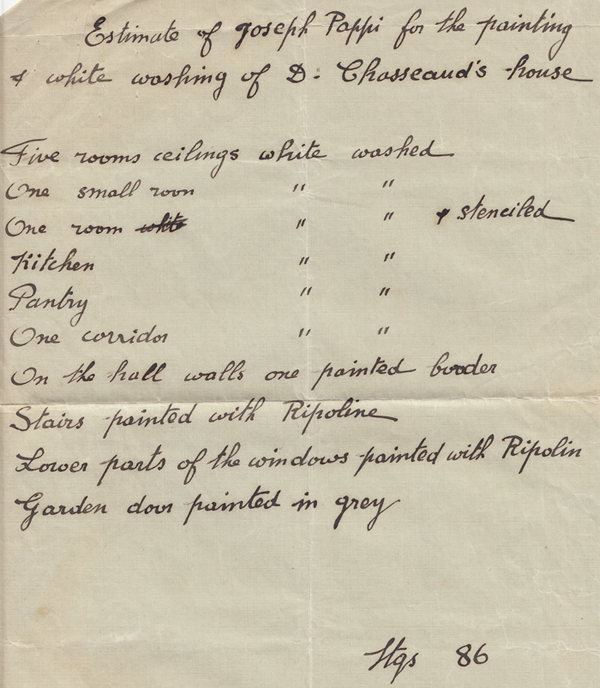 Estimate of Joseph Pappi for the painting
& white washing of D. Chasseaud's house
Five rooms ceilings white washed
One small room " "
One room white " " & stenciled
Kitchen " "
Pantry " "
One corridor " "
On the hall walls one painted border
Stairs painted with Ripoline
Lower parts of the windows painted with Ripolin
Garden door painted in grey
Stgs 86